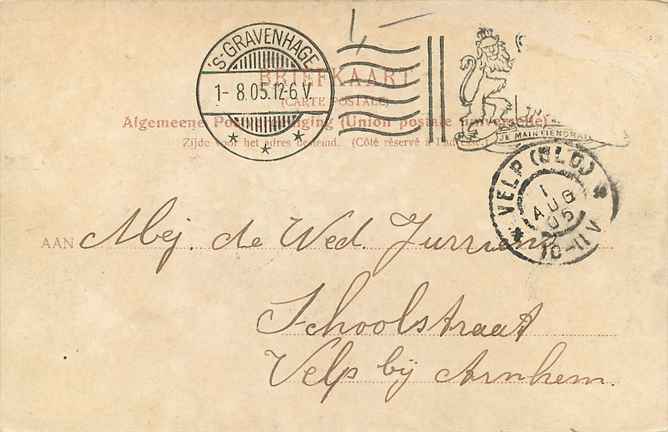 1,—
'S-GRAVENHAGE
1-8.05.12-6V
* * *
BRIEFKAART
(CARTE POSTALE)
Algemeene Postvereeniging (Union postale universelle)
JE MAINTIENDRAI
Zijde voor het adres bestemd. (Côté réservé à l'adresse)
VELP (GLD)
1
AUG
05
10-11V
AAN Mej. de Wed. Jurriens
Schoolstraat
Velp bij Arnhem.